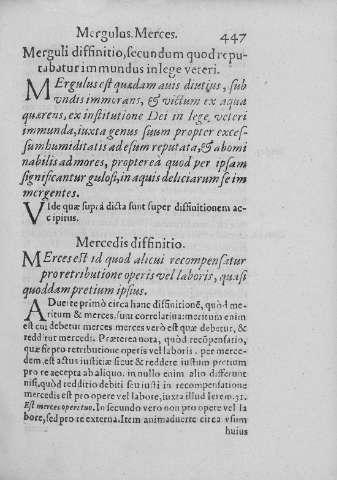 Mergulus. Merces. 447
Merguli diffinitio, secundum quod repu-
tabatur immundus in lege veteri.
MErgulus est quædam auis diutius, sub
vndis immorans, & victum ex aqua
quærens, ex institutione Dei in lege veteri
immunda, iuxta genus suum propter exces-
sum humiditatis ad esum reputata, & abomi
nabilis ad mores, propterea quod per ipsam
significantur gulosi, in aquis deliciarum se im
mergentes.
VIde quæ suprá dicta sunt super diffinitionem ac-
cipitris.
Mercedis diffinitio.
MErces est id quod alicui recompensatur
pro retributione operis vel laboris, quasi
quoddam pretium ipsius.
ADuerte primò circa hanc diffinitionē, quòd me-
ritum & merces, sunt correlatiua: meritum enim
est cui debetur merces merces verò est quæ debetur, &
redditur mercedi. Præterea nota, quòd recōpensatio,
quæ fit pro retributione operis vel laboris. per merce-
dem, est actus iustitiæ sicut & reddere iustum pretium
pro re accepta ab aliquo. in nullo enim alio differunt
nisi, quòd redditio debiti seu iusti in recompensatione
mercedis est pro opere vel labore, iuxta illud Ierem. 31.
Est merces operi tuo. In secundo vero non pro opere vel la
bore, sed pro re externa. Item animaduerte circa vsum
huius